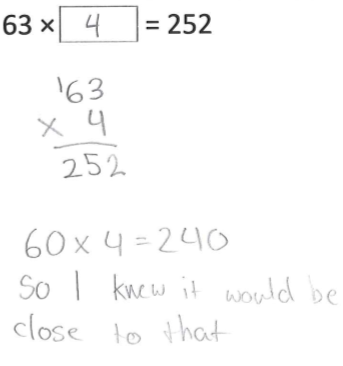 63 × 4 = 252
¹63
× 4
252
60 × 4 = 240
So I knew it would be
close to that